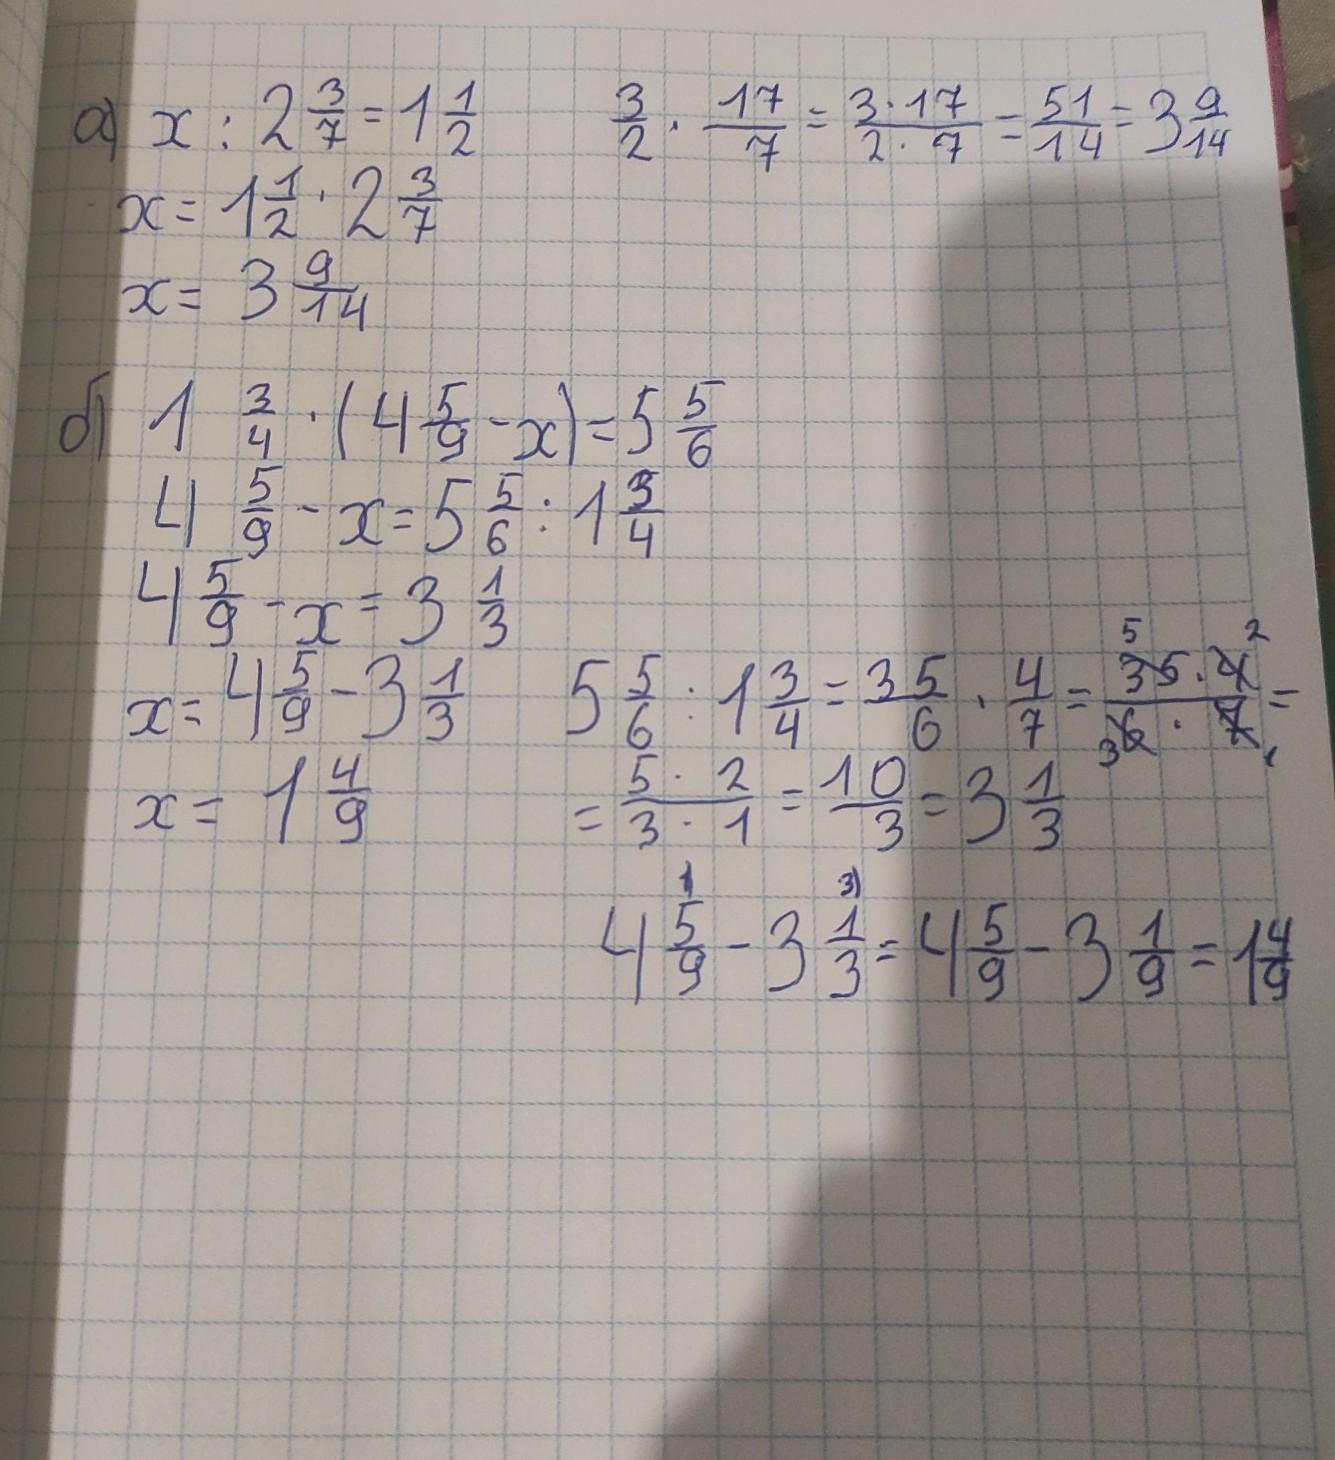 а) x : 2 3/7 = 1 1/2    3/2 · 17/7 = 3·17/2·7 = 51/14 = 3 9/14
x = 1 1/2 · 2 3/7
x = 3 9/14
б) 1 3/4 · (4 5/9 - x) = 5 5/6
4 5/9 - x = 5 5/6 : 1 3/4
4 5/9 - x = 3 1/3
x = 4 5/9 - 3 1/3    5 5/6 : 1 3/4 = 35/6 · 4/7 = 35·4/6·7 =
x = 1 4/9    = 5·2/3·1 = 10/3 = 3 1/3
4 5/9 - 3 1/3 = 4 5/9 - 3 1/9 = 1 4/9